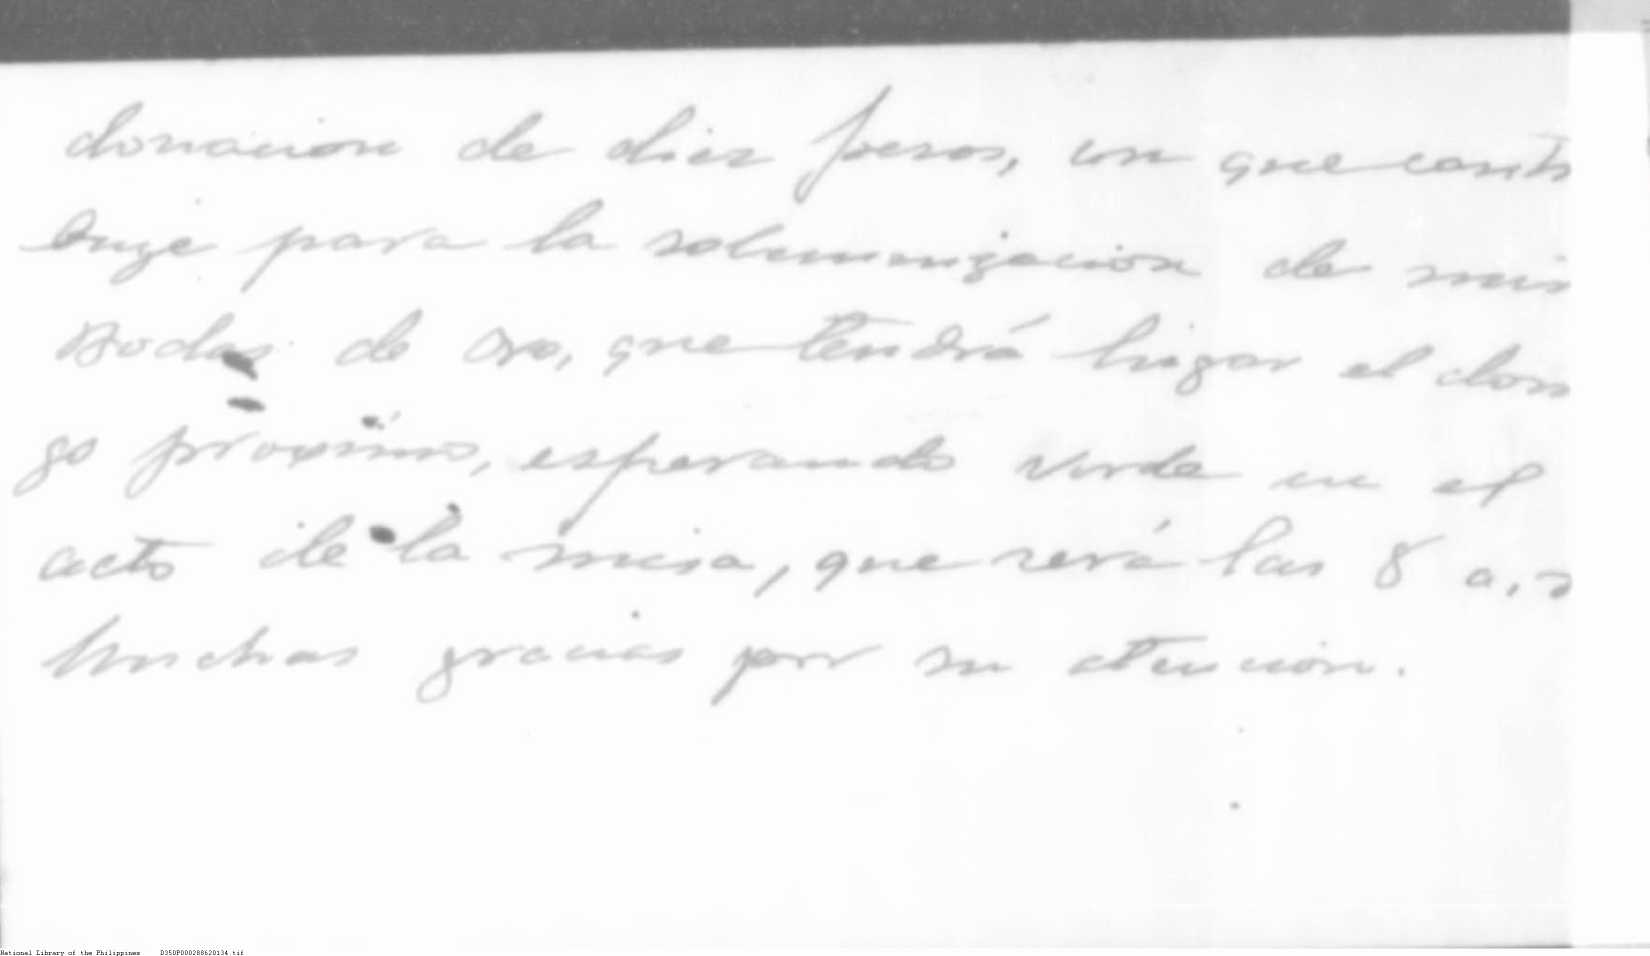 donación de diez pesos, con que contri
buye para la solemnización de mis
Bodas de Oro, que tendrá lugar el domi
go próximo, esperando verde en el
acto de la misa, que será las 8 a.
Muchas gracias por su atención.
National Library of the Philippines D350P000288620134.tif